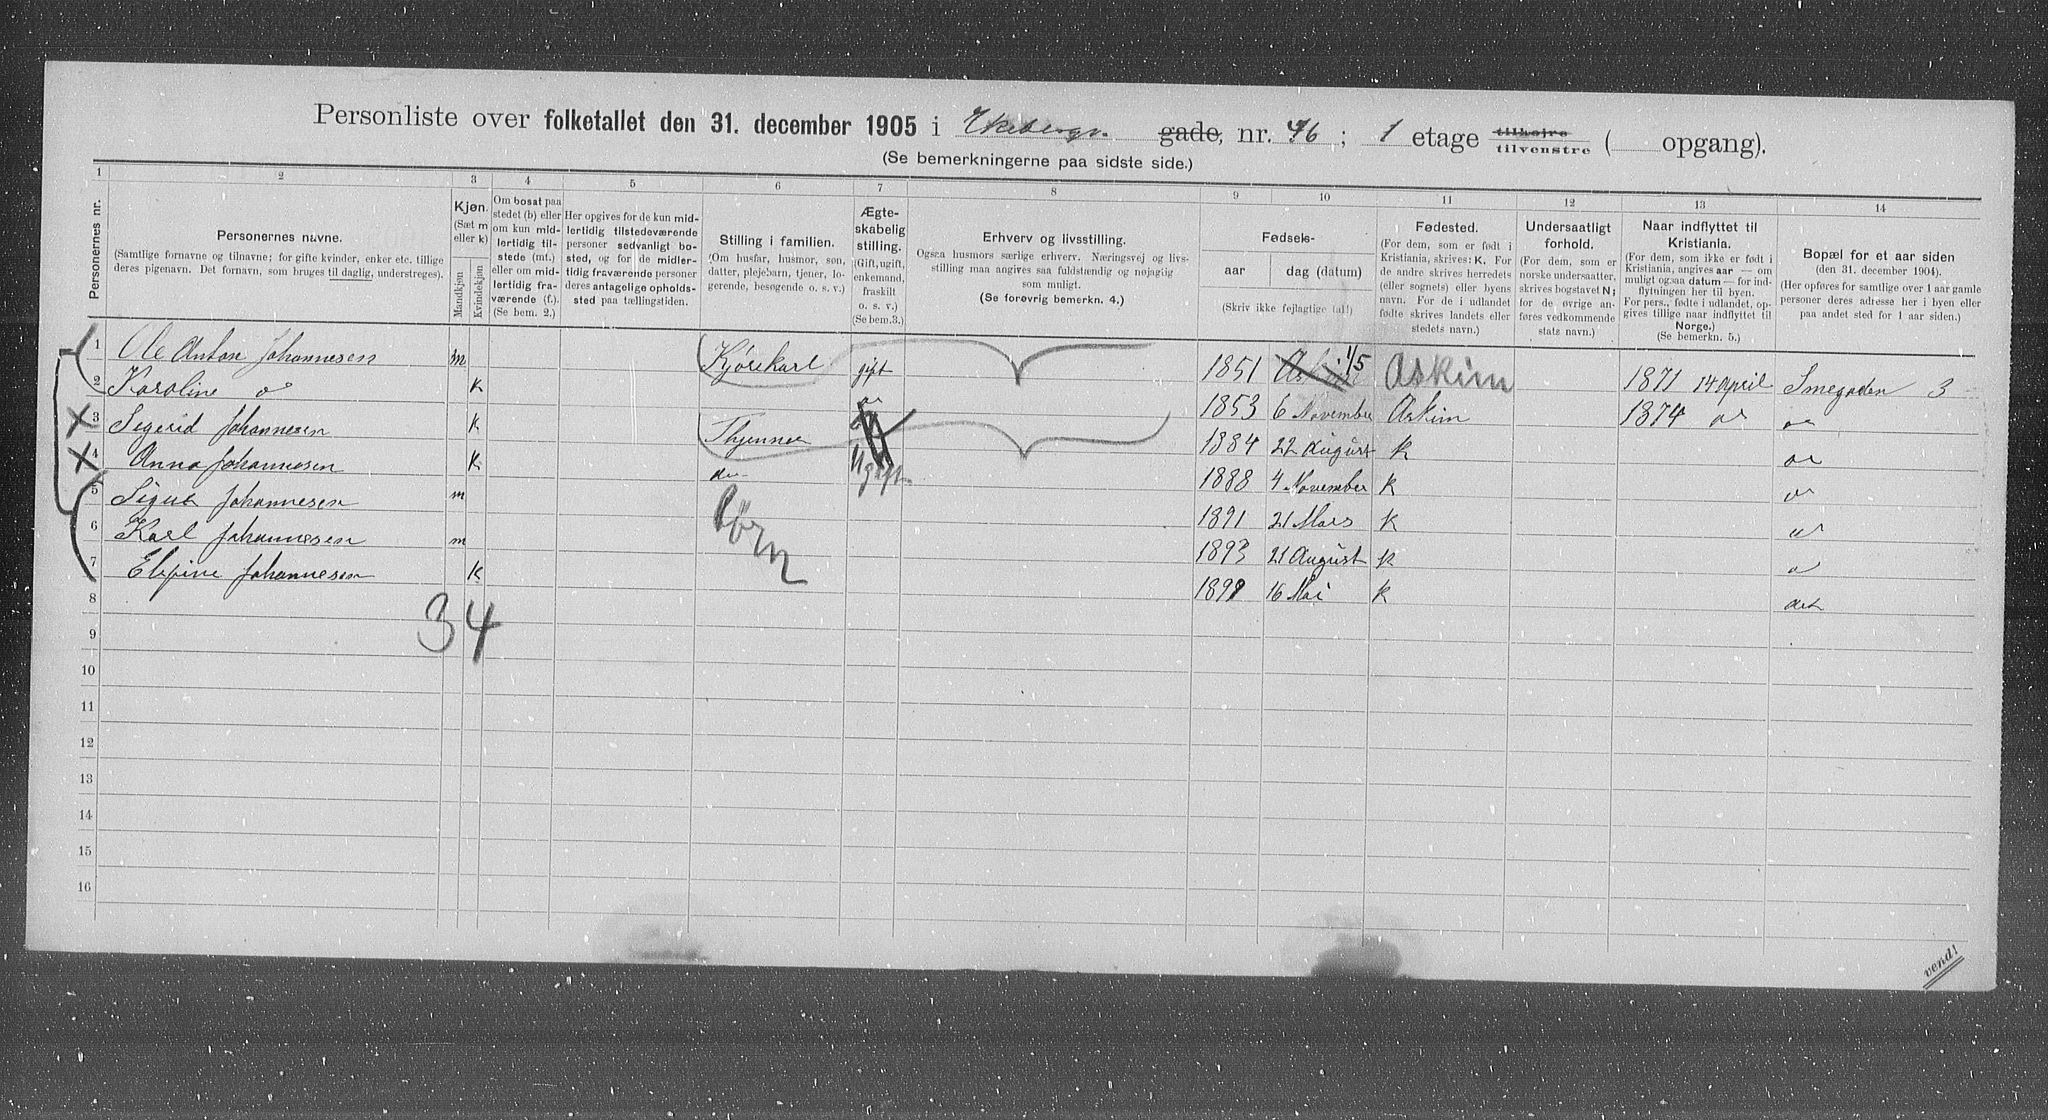 Personliste over folketallet den 31. december 1905 i Ekebergv. gade, nr. 46 ; 1 etage tilhøjre tilvenstre ( opgang).
(Se bemerkningerne paa sidste side.)
1 2 3 4 5 6 7 8 9 10 11 12 13 14
Personernes nr.
Personernes navne.
(Samtlige fornavne og tilnavne; for gifte kvinder, enker etc. tillige
deres pigenavn. Det fornavn, som bruges til daglig, understreges).
Kjøn.
(Sæt m
eller k)
Mandkjøn
Kvindekjøn
Om bosat paa
stedet (b) eller
om kun mid-
lertidig til-
stede (mt.)
eller om mid-
lertidig fra-
værende (f.).
(Se bem. 2.)
Her opgives for de kun mid-
lertidig tilstedeværende
personer sedvanligt bo-
sted, og for de midler-
tidig fraværende personer
deres antagelige opholds-
sted paa tællingstiden.
Stilling i familien.
(Om husfar, husmor, søn,
datter, plejebarn, tjener, lo-
gerende, besøgende o. s. v.)
Ægte-
skabelig
stilling.
(Gift, ugift,
enkemand,
fraskilt
o. s. v.)
(Se bem.3.)
Erhverv og livsstilling.
Ogsaa husmors særlige erhverv. Næringsvej og livs-
stilling maa angives saa fuldstændig og nøjagtig
som muligt.
(Se forøvrig bemerkn. 4.)
Fødsels-
aar dag (datum)
(Skriv ikke fejlagtige tal!)
Fødested.
(For dem, som er født i
Kristiania, skrives: K. For
de andre skrives herredets
(eller sognets) eller byens
navn. For de i udlandet
fødte skrives landets eller
stedets navn.)
Undersaatligt
forhold.
(For dem, som er
norske undersaatter,
skrives bogstavet N;
for de øvrige an-
føres vedkommende
stats navn.)
Naar indflyttet til
Kristiania.
(For dem, som ikke er født i
Kristiania, angives aar — om
muligt ogsaa datum — for ind-
flytningen her til byen.
For pers., fødte i udlandet, op-
gives tillige naar indflyttet til
Norge.)
(Se bemerkn. 5.)
Bopæl for et aar siden
(den 31. december 1904).
(Her opføres for samtlige over 1 aar gamle
personer deres adresse her i byen eller
paa andet sted for 1 aar siden.)
1 Ole Anton Johannesen m Kjørekarl gift 1851 1/5 Askim 1871 14 april Smegaden 3
2 Karoline do K do 1853 6 November Askim 1874 do do
3 Sigrid Johannesen K 1884 22 August K do
4 Anna Johannesen K do Ugift. 1888 4 November K do
5 Johannesen m Børn 1891 21 Mars K do
6 Karl Johannesen m 1893 21 August K do
7 Johannesen K 16 Mai K do
8
34
9
10
11
12
13
14
15
16
vend!